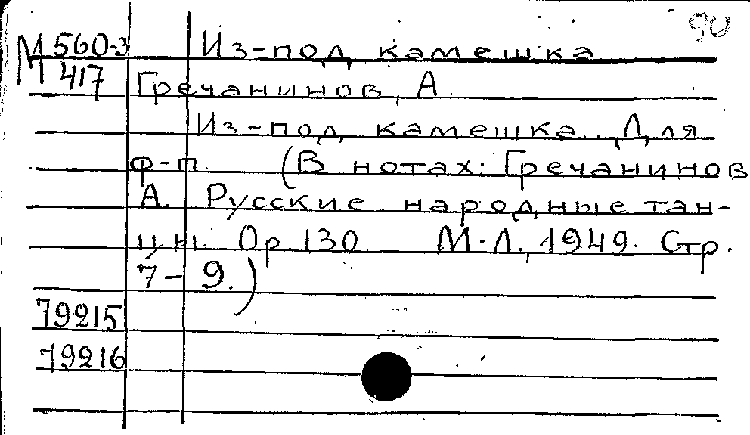 90
М 560-3 Из-под камешка
М 417 Гречанинов, А.
Из-под камешка. Для
ф-п. (В нотах: Гречанинов
А. Русские народные тан-
цы. Ор. 130 М.-Л., 1949. Стр.
7-9.)
79215
79216